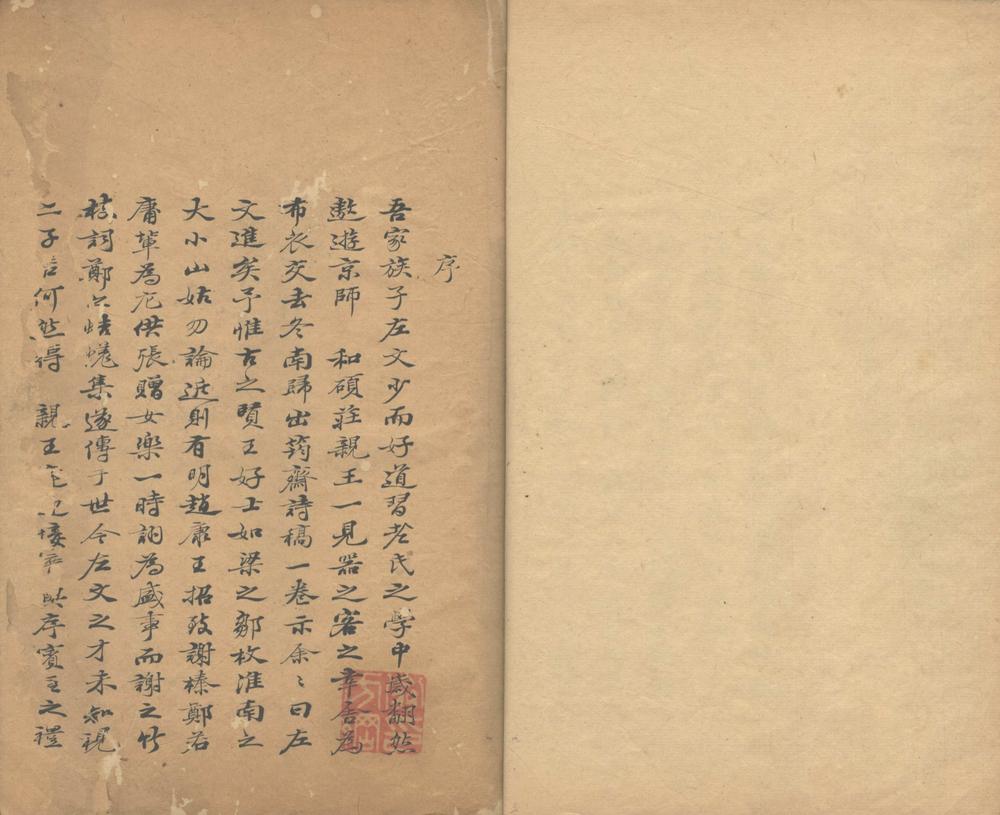 序
吾家族子左文少而好道習老氏之學中歲翻然
遨遊京師 和碩莊親王一見器之客之幸居為
布衣交去冬南歸出筠齋詩稿一卷示余〻曰左
文進矣予惟古之賢王好士如梁之鄒枚淮南之
大小山姑勿論近則有明趙康王招致謝榛鄭若
庸輩為尤供張贈女樂一時詡為盛事而謝之竹
枝詞鄭之蛣蜣集遂傳于世今左文之才未知視
二子何然得 親王序賓主之禮